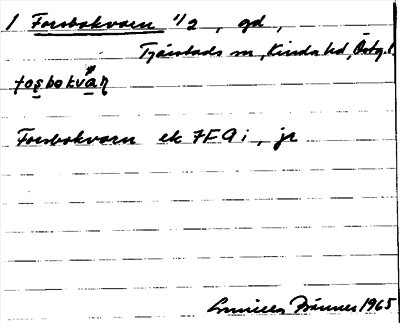 1 Forsbokvarn 1/2, gd,
Tjärstads sn, Kinda hd, Östg.l.
fosbokvàɳ
Forsbokvarn ek 7F9i, jr
Brånner 1965